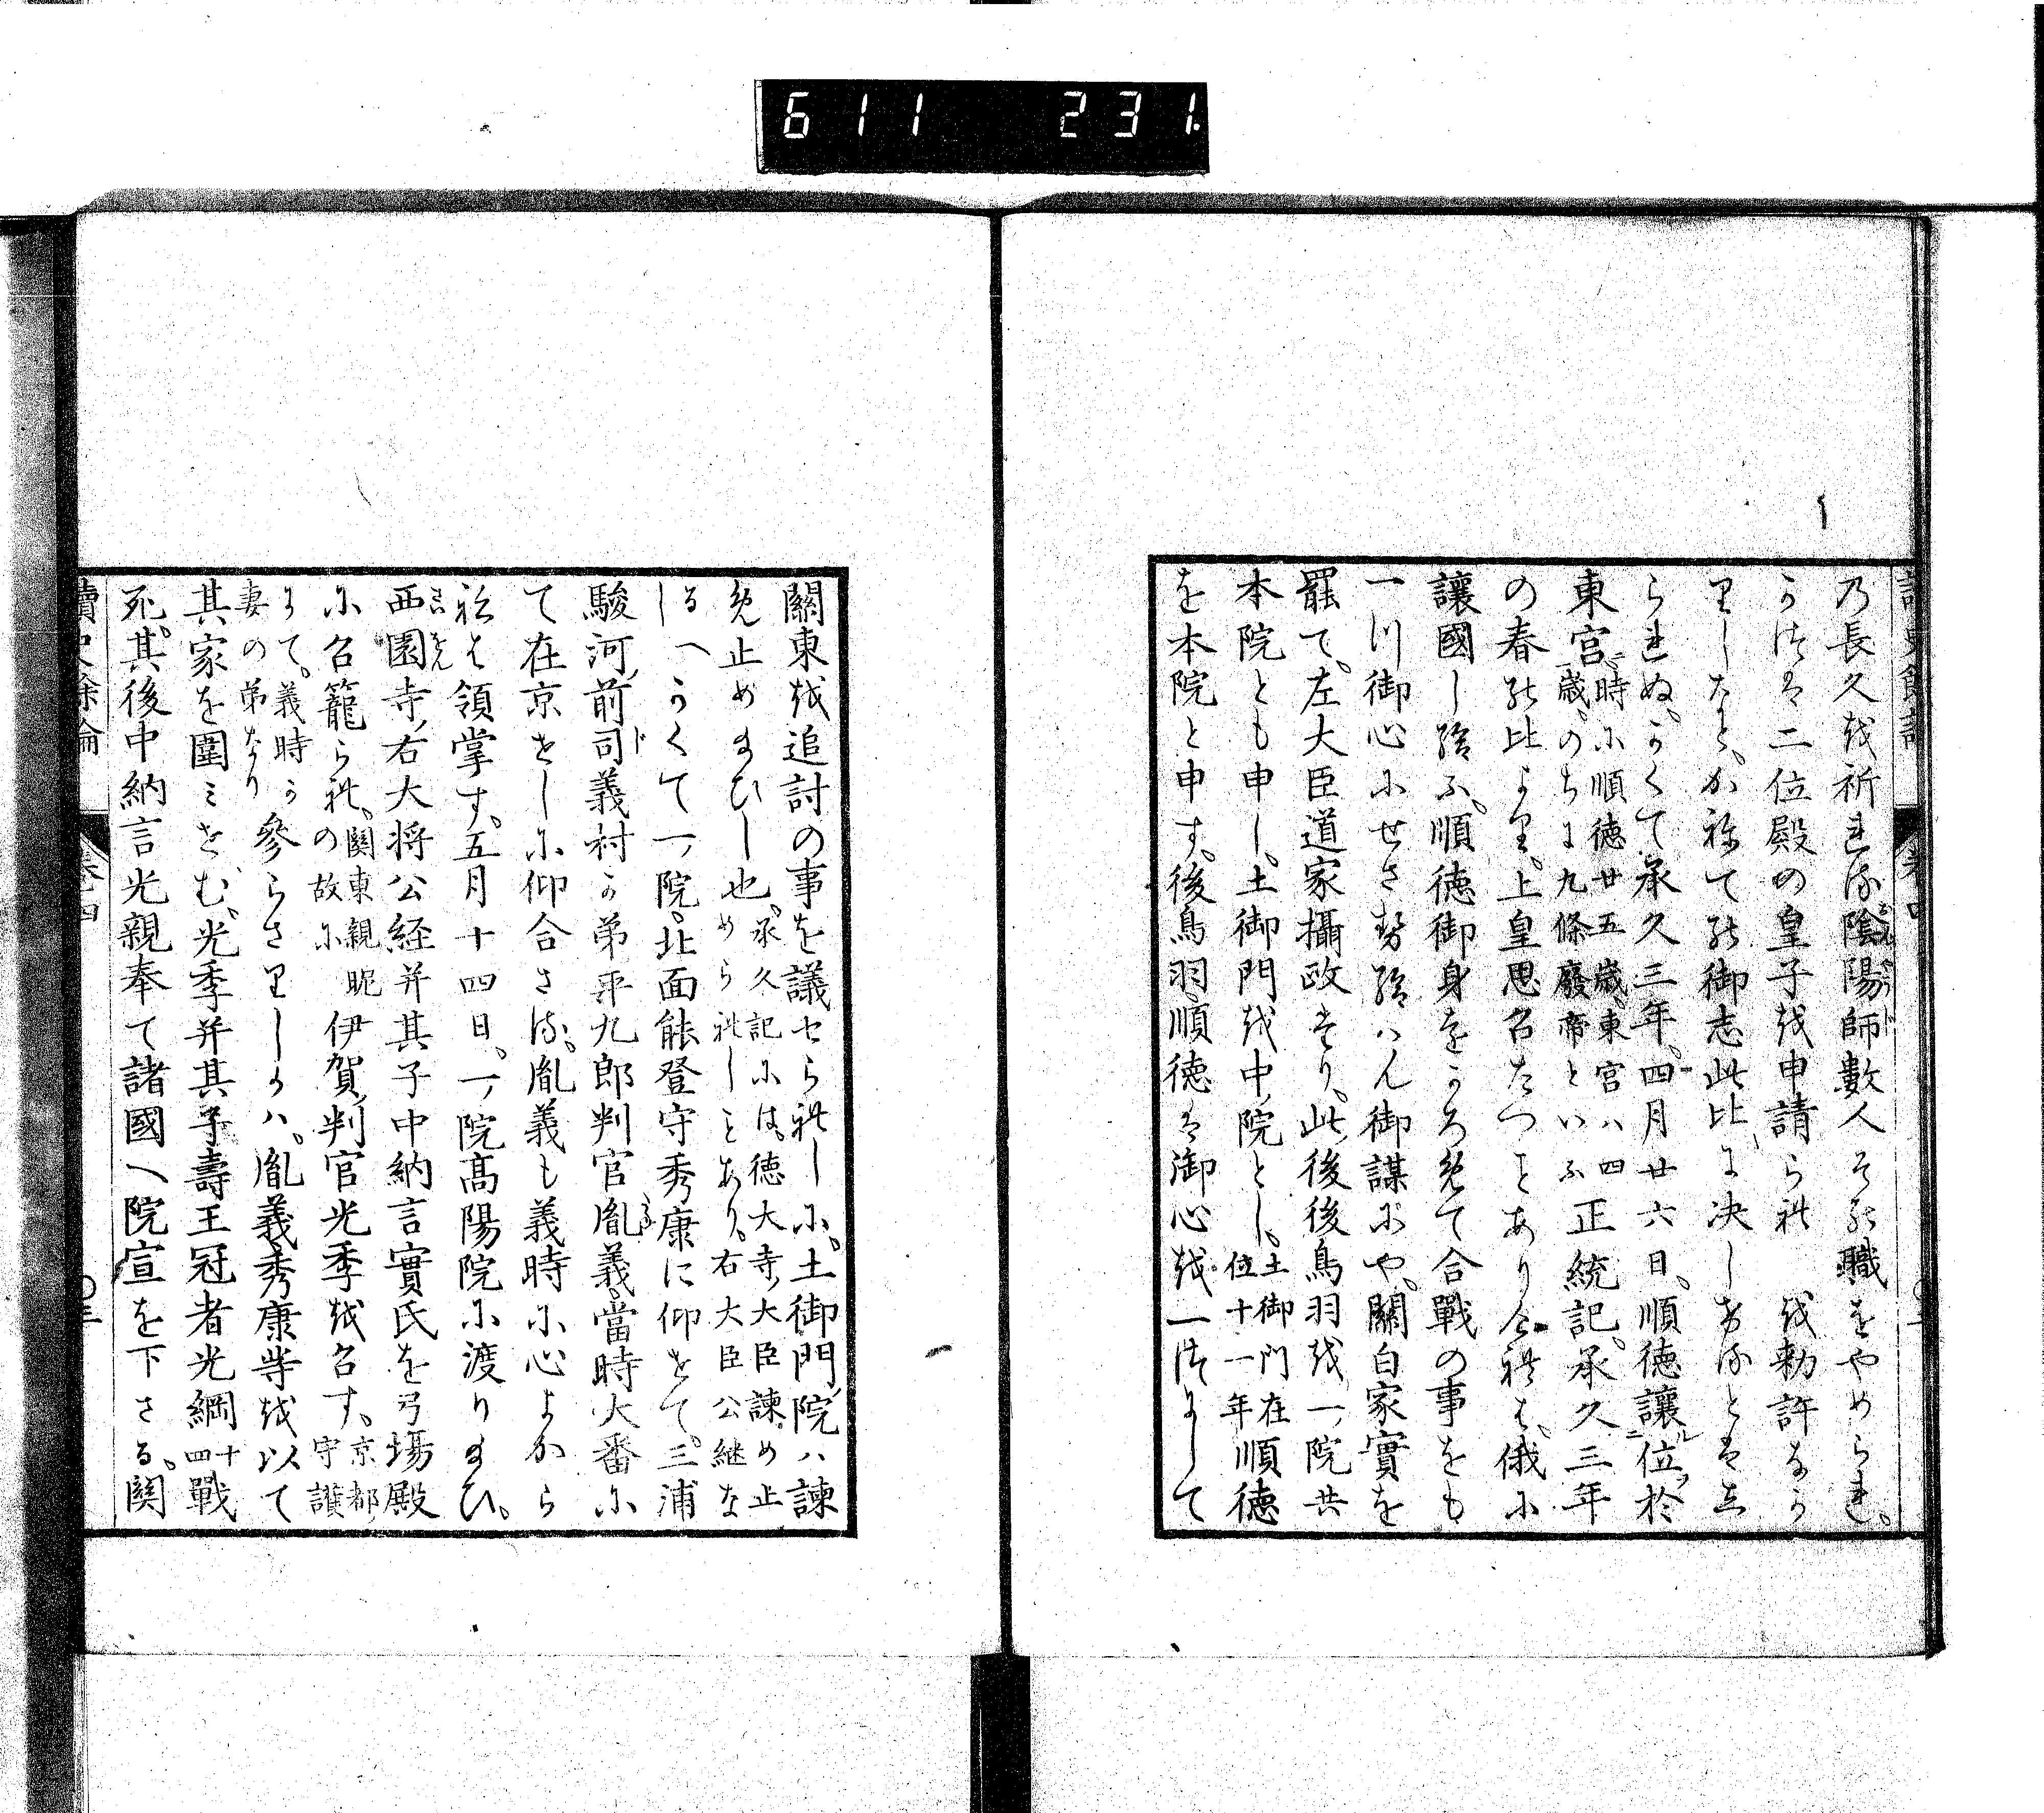 611 231.
乃長久越祈れる陰陽師數人その職をやめられ。
かは二位殿の皇子越申請られ 越勅許なか
りしなと、かねての御志此比に決しけるとはし
られぬ。かくて承久三年。四月廿六日。順徳讓位於
東宮。時に順徳廿五歲。東宮ハ四歲。のちに九條廢帝といふ 正統記。承久三年
の春の比より。上皇思召たつことあり。俄に
讓國し給ふ。順徳御身をかろめて合戰の事をも
一川御心にせさせ給ハん御謀にや。關白家實を
罷て。左大臣道家攝政たり。此後後鳥羽越一院共
本院とも申し。土御門越中院とし。土御門在位十一年 順徳
を本院と申す。後鳥羽順徳は御心越一つにして
關東越追討の事を議せられしに。土御門院ハ諫
め止めまひし也。承久記には。徳大寺大臣諫め止められしことあり。右大臣公継な
るへし かくて一院。北面能登守秀康に仰せて。三浦
駿河前司義村か弟平九郎判官胤義。當時大番に
て在京せしに仰合さる。胤義も義時に心よから
ねは領掌す。五月十四日。一院高陽院に渡りまひ。
西園寺右大将公経并其子中納言實氏を弓場殿
に召籠られ。關東親昵の故に 伊賀判官光季越召す。京都守護
よて。義時か妻の弟なり 參らさりしかハ。胤義秀康等越以て
其家を圍ミせむ。光季并其子壽王冠者光綱十四戰
死。其後中納言光親奉て諸國へ院宣を下さる。関
讀史餘論 卷四